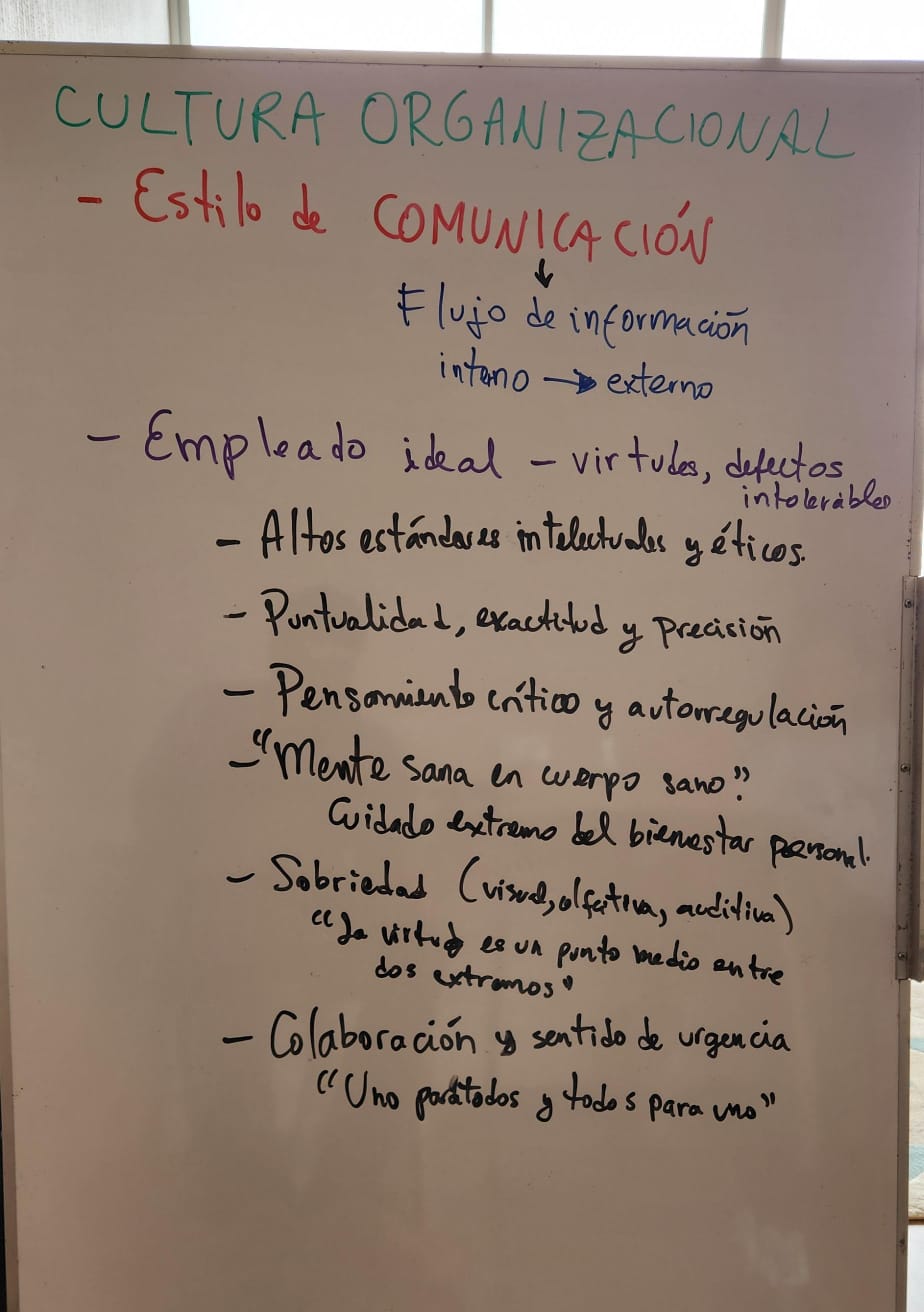 CULTURA ORGANIZACIONAL
- Estilo de COMUNICACIÓN
↓
Flujo de información
interno → externo
- Empleado ideal - virtudes, defectos
intolerables
- Altos estándares intelectuales y éticos.
- Puntualidad, exactitud y precisión
- Pensamiento crítico y autorregulación
- "Mente sana en cuerpo sano".
Cuidado extremo del bienestar personal.
- Sobriedad (visual, olfativa, auditiva)
"La virtud es un punto medio entre
dos extremos"
- Colaboración y sentido de urgencia
"Uno para todos y todos para uno"